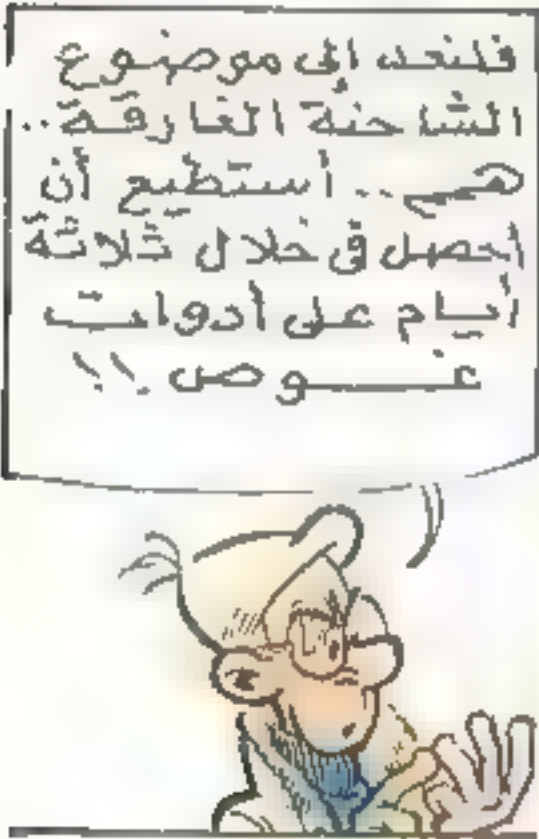 فلنعد إلى موضوع
الشاحنة الغارقة..
همم.. أستطيع أن
أحصل في خلال ثلاثة
أيام على أدوات
غـــوص !!